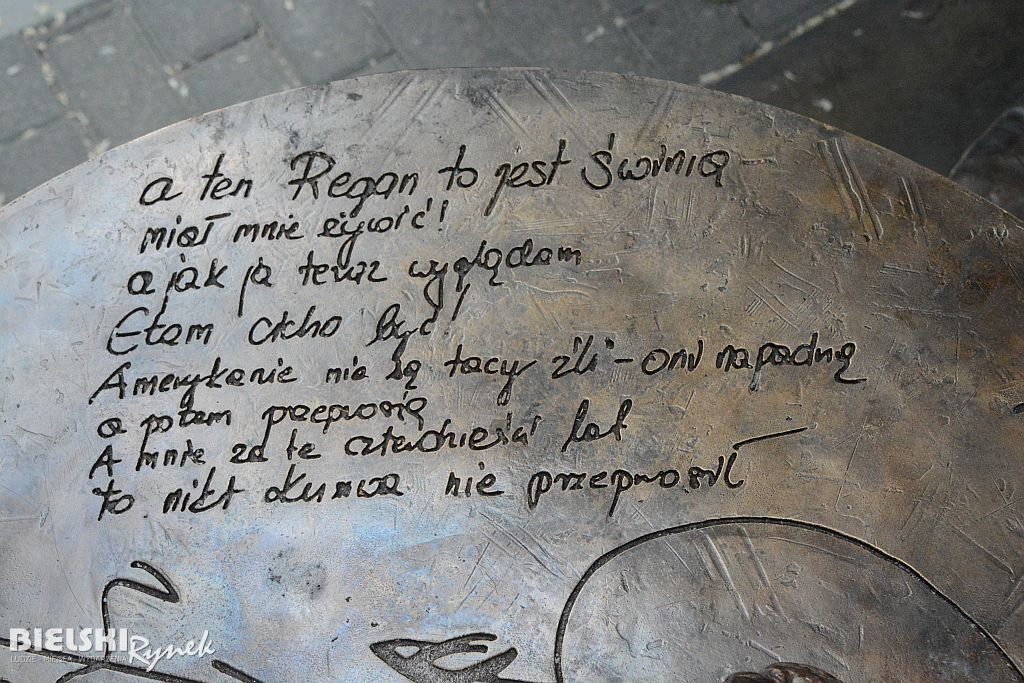 a ten Regan to jest świnią
miał mnie żywić!
a jak ja teraz wyglądam
Etam cicho być!
Amerykanie nie są tacy źli - oni napadną
a potem przeproszą
A mnie za te czterdzieści lat
to nikt kurwa nie przeprosił
BIELSKI Rynek
LUDZIE MIEJSCA WYDARZENIA